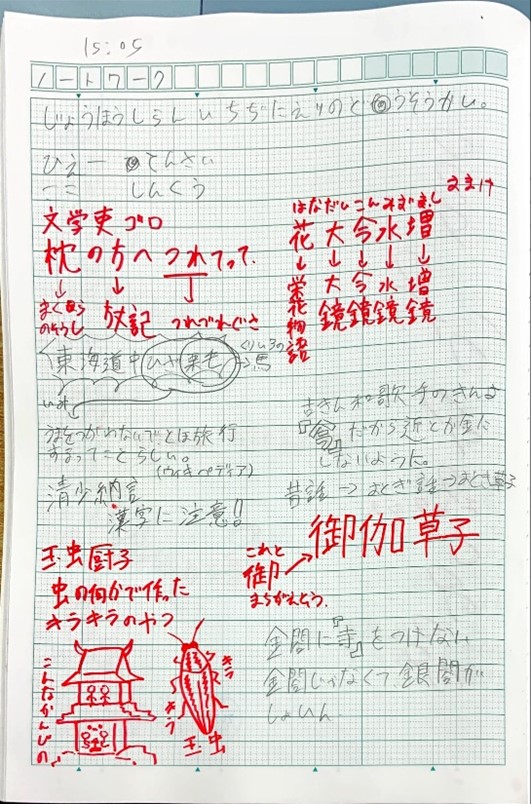 15:05
ノートワーク
じょうほうしらんいちぢたえりのと◎うそうかい。
ひえー
てんさい
しんくう
文学吏ゴロ
枕の方へつれてって.
まくらのそうし
方丈記
つれづれぐさ
はなだいこんみずまし
花大今水増
↓↓↓↓↓
栄花物語
大鏡
今鏡
水鏡
増鏡
東海道中ひざ栗毛
くりいろの馬
うまをつかわないでとほ旅行
するってことらしい。
(ウィキペディア)
清少納言
漢字に注意!!
古きん和歌
だから近とか金に
しないように。
昔話→おとぎ話→おとぎ草子
御伽草子
これと
御
まちがえそう.
玉虫厨子
虫の何かで作った
キラキラのヤツ
こんなかんじの
キラ
キラ
玉虫
金閣に『寺』をつけない
金閣じゃなくて銀閣が
しょいん.